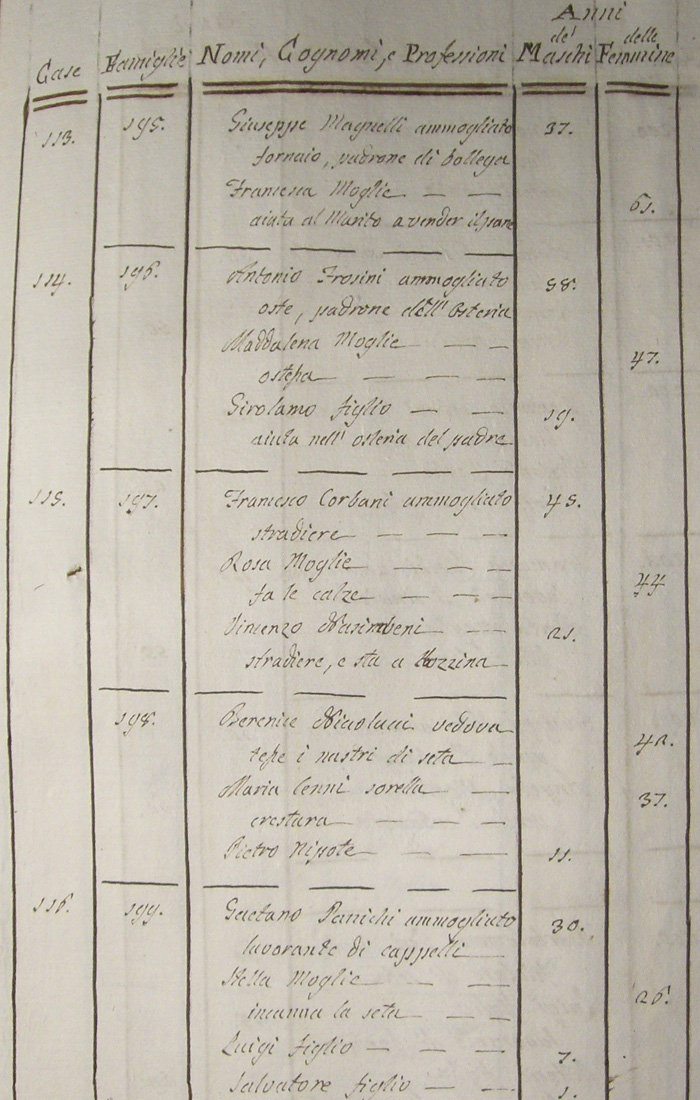 Anni
Case Famiglie Nomi, Cognomi, e Professioni de' Maschi delle Femmine
113. 195. Giuseppe Magnelli ammogliato 37.
fornaio, padrone di bottega
Francesca Moglie
61.
aiuta al Marito a vender il pane
114. 196. Antonio Frosini ammogliato 58.
oste, padrone dell' Osteria
Maddalena Moglie
47.
ostessa
Girolamo figlio 19.
aiuta nell' osteria del padre
115. 197. Francesco Corbani ammogliato 45.
stradiere
Rosa Moglie
44
fa le calze
Vincenzo Nasimbeni 21.
stradiere, e sta a Dozzina
198. Berenice Nicolucci vedova
42.
tesse i nastri di seta
Maria Cenni sorella
37.
crestara
Pietro Nipote 11.
116. 199. Gaetano Panichi ammogliato 30.
lavorante di cappelli
Stella Moglie
26.
incanna la seta
Luigi figlio 7.
Salvatore figlio 1.